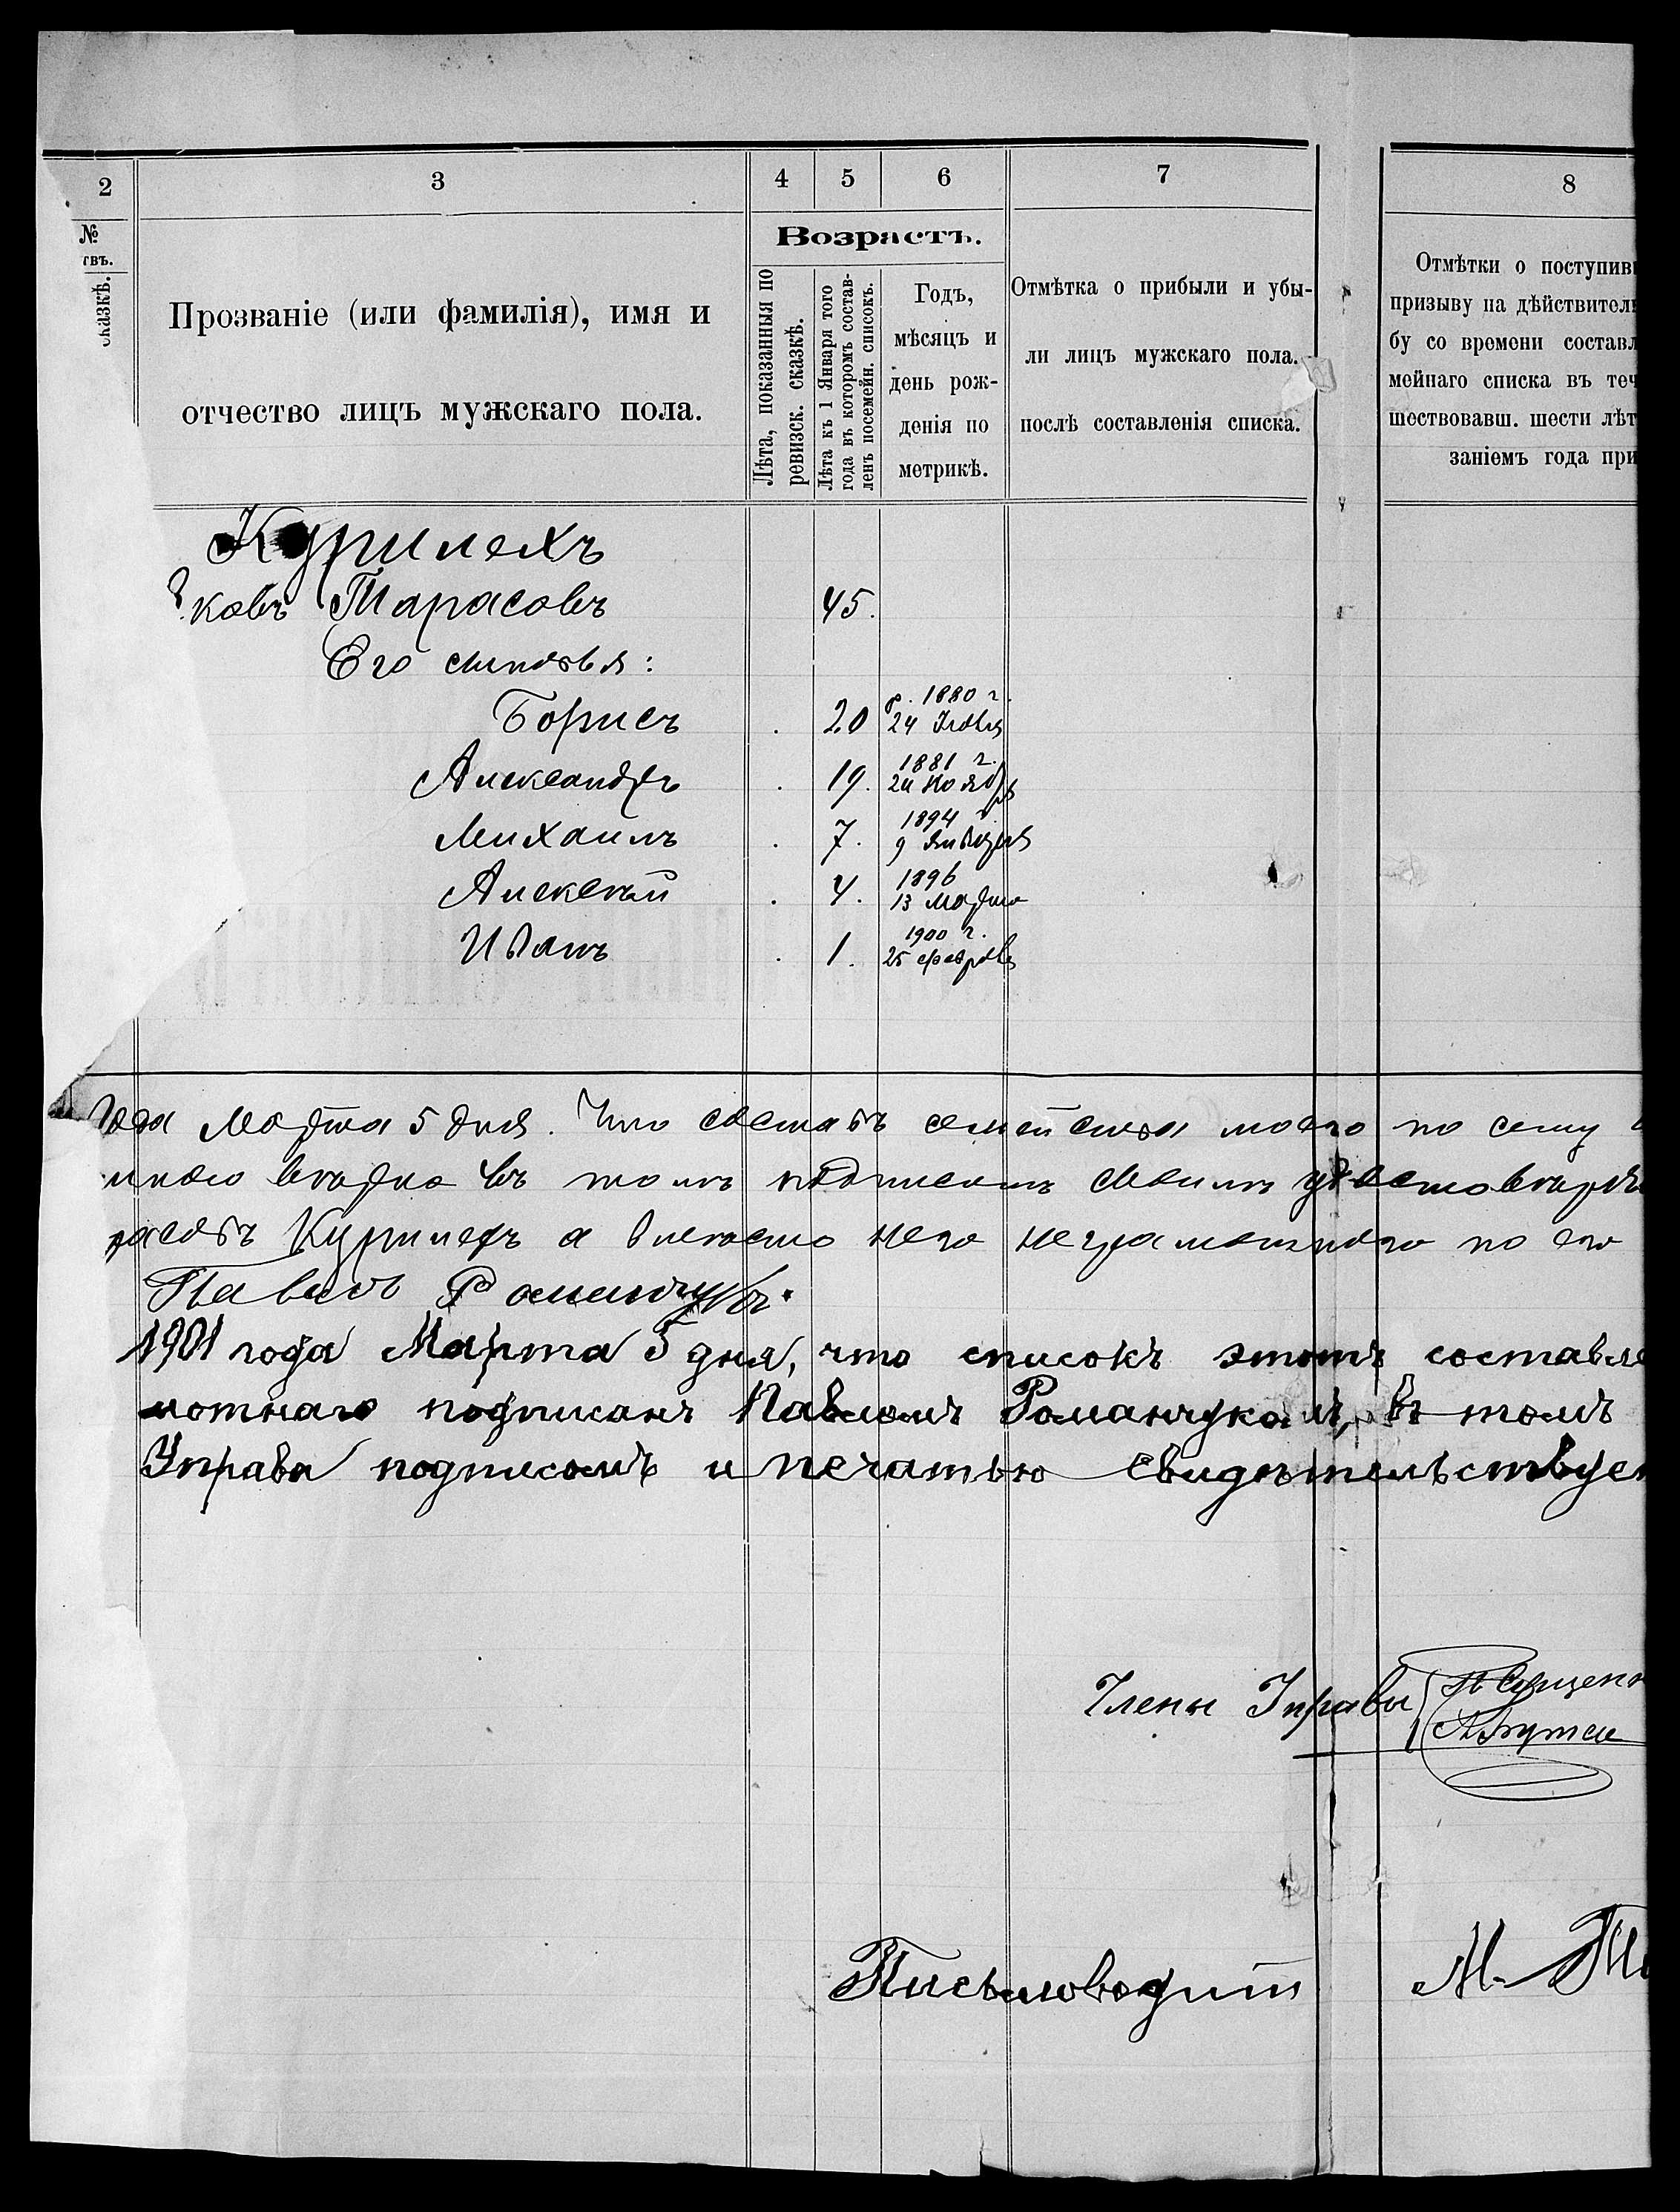 2
3
4
5
6
7
8
№
твъ.
сказкѣ.
Прозваніе (или фамилія), имя и
отчество лицъ мужскаго пола.
Возрастъ.
Лѣта, показанныя по
ревизск. сказкѣ.
Лѣта къ 1 Января того
года въ которомъ состав-
ленъ посемейн. списокъ.
Годъ,
мѣсяцъ и
день рож-
денія по
метрикѣ.
Отмѣтка о прибыли и убы-
ли лицъ мужскаго пола.
послѣ составленія списка.
Отмѣтки о поступив
призыву на дѣйствител
бу со времени составл
мейнаго списка въ теч
шествовавш. шести лѣт
заніемъ года при
Курилехъ
ковъ Тарасовъ 45.
Его сыновья:
Борисъ 20 р. 1880 г. 24 Іюля
Александръ 19. 1881 г. 24 Ноября
Михаилъ 7. 1894 г. 9 Января
Алексѣй 4. 1896 13 Марта
Иванъ 1. 1900 г. 25 февраля
года Марта 5 дня. Что составъ семейства моего по сему
мною вѣрно въ томъ подписомъ своимъ удостовѣря
расовъ Курилехъ а вместо него неграмотного по его
Павелъ Романчукъ.
1901 года Марта 5 дня, что списокъ этотъ составле
мотнаго подписанъ Павломъ Романчукомъ, въ томъ
Управа подписомъ и печатью свидѣтельствует
Члены Управы
Письмоводит М.